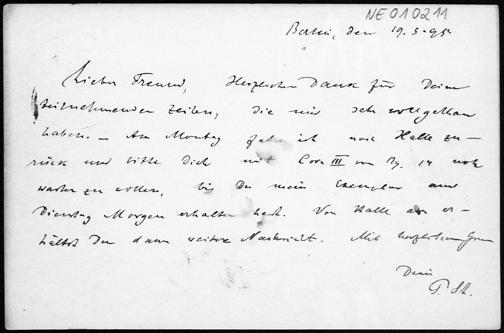 NE010211
Berlin, den 19. 5. 95.
Lieber Freund, Herzlichen Dank für Deine
teilnehmenden Zeilen, die mir sehr wohlgethan
haben. – Am Montag ich nach Halle zu-
rück und bitte Dich mit Corr III von Bg. 14 noch
warten zu wollen, bis Du mein Exemplar am
Dienstag Morgen erhalten hast. Von Halle aus er-
hältst Du dann weitere Nachricht. Mit herzlichem Gruss
Dein
P. St.